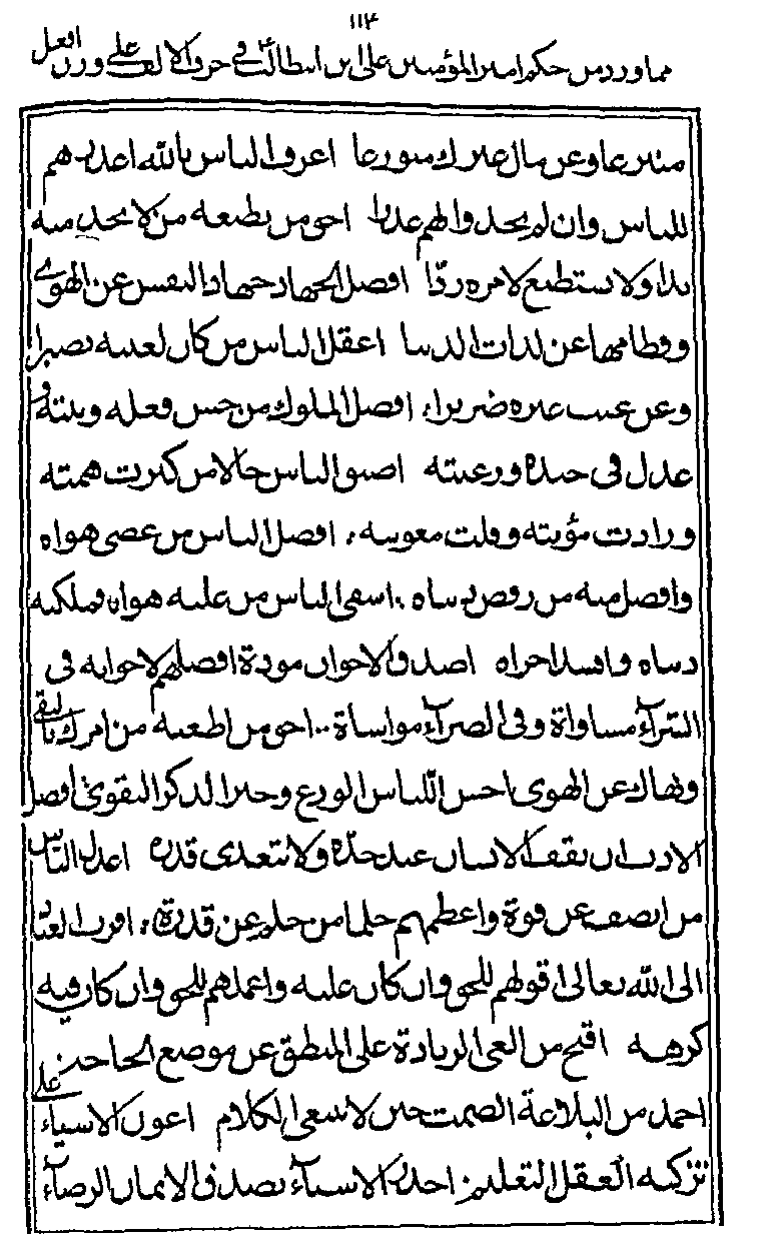 ١١٤
مما ورد من حكم امير المؤمنين علي ابن ابيطالب في حرف الالف على وزن افعل
متبرعا وعن مال غيرك متورعا اعرف الناس بالله اعذرهم
للناس وان لم يجد والهم عذرا احق من تطيعه من لا تجد منه
بدا ولا تستطيع لامره ردّا افضل الجهاد جهاد النفس عن الهوى
وفطامها عن لذات الدنيا اعقل الناس من كان لعيبه بصيرا
وعن عيب غيره ضريرا افضل الملوك من حسن فعله ونيته و
عدل في جنده ورعيته اضيق الناس حالا من كثرت همته
وزادت مؤنته وقلت معونته افضل الناس من عصى هواه
وافضل منه من رفض دنياه اشقى الناس من غلبه هواه فملكته
دنياه وافسد اخراه اصدق الاخوان مودة افضلهم لاخوانه في
السّرآء مساواة وفي الضرآء مواساة احق من اطعته من امرك بالتقى
ونهاك عن الهوى احسن اللباس الورع وخير الذكر التقوى افضل
الادب ان يقف الانسان عند حدّه ولا يتعدى قدره اعدل الناس
من انصف عن قوة واعظمهم حلما من حلم عن قدرة اقرب العباد
الى الله تعالى اقولهم للحق وان كان عليه واعملهم للحق وان كان فيه
كرهه اقبح من العي الزيادة على المنطق عن موضع الحاجة
احمد من البلاغة الصمت حين لا ينبغي الكلام اعون الاشياء على
تزكية العقل التعليم اجدر الاشياء بصدق الايمان الرضاء